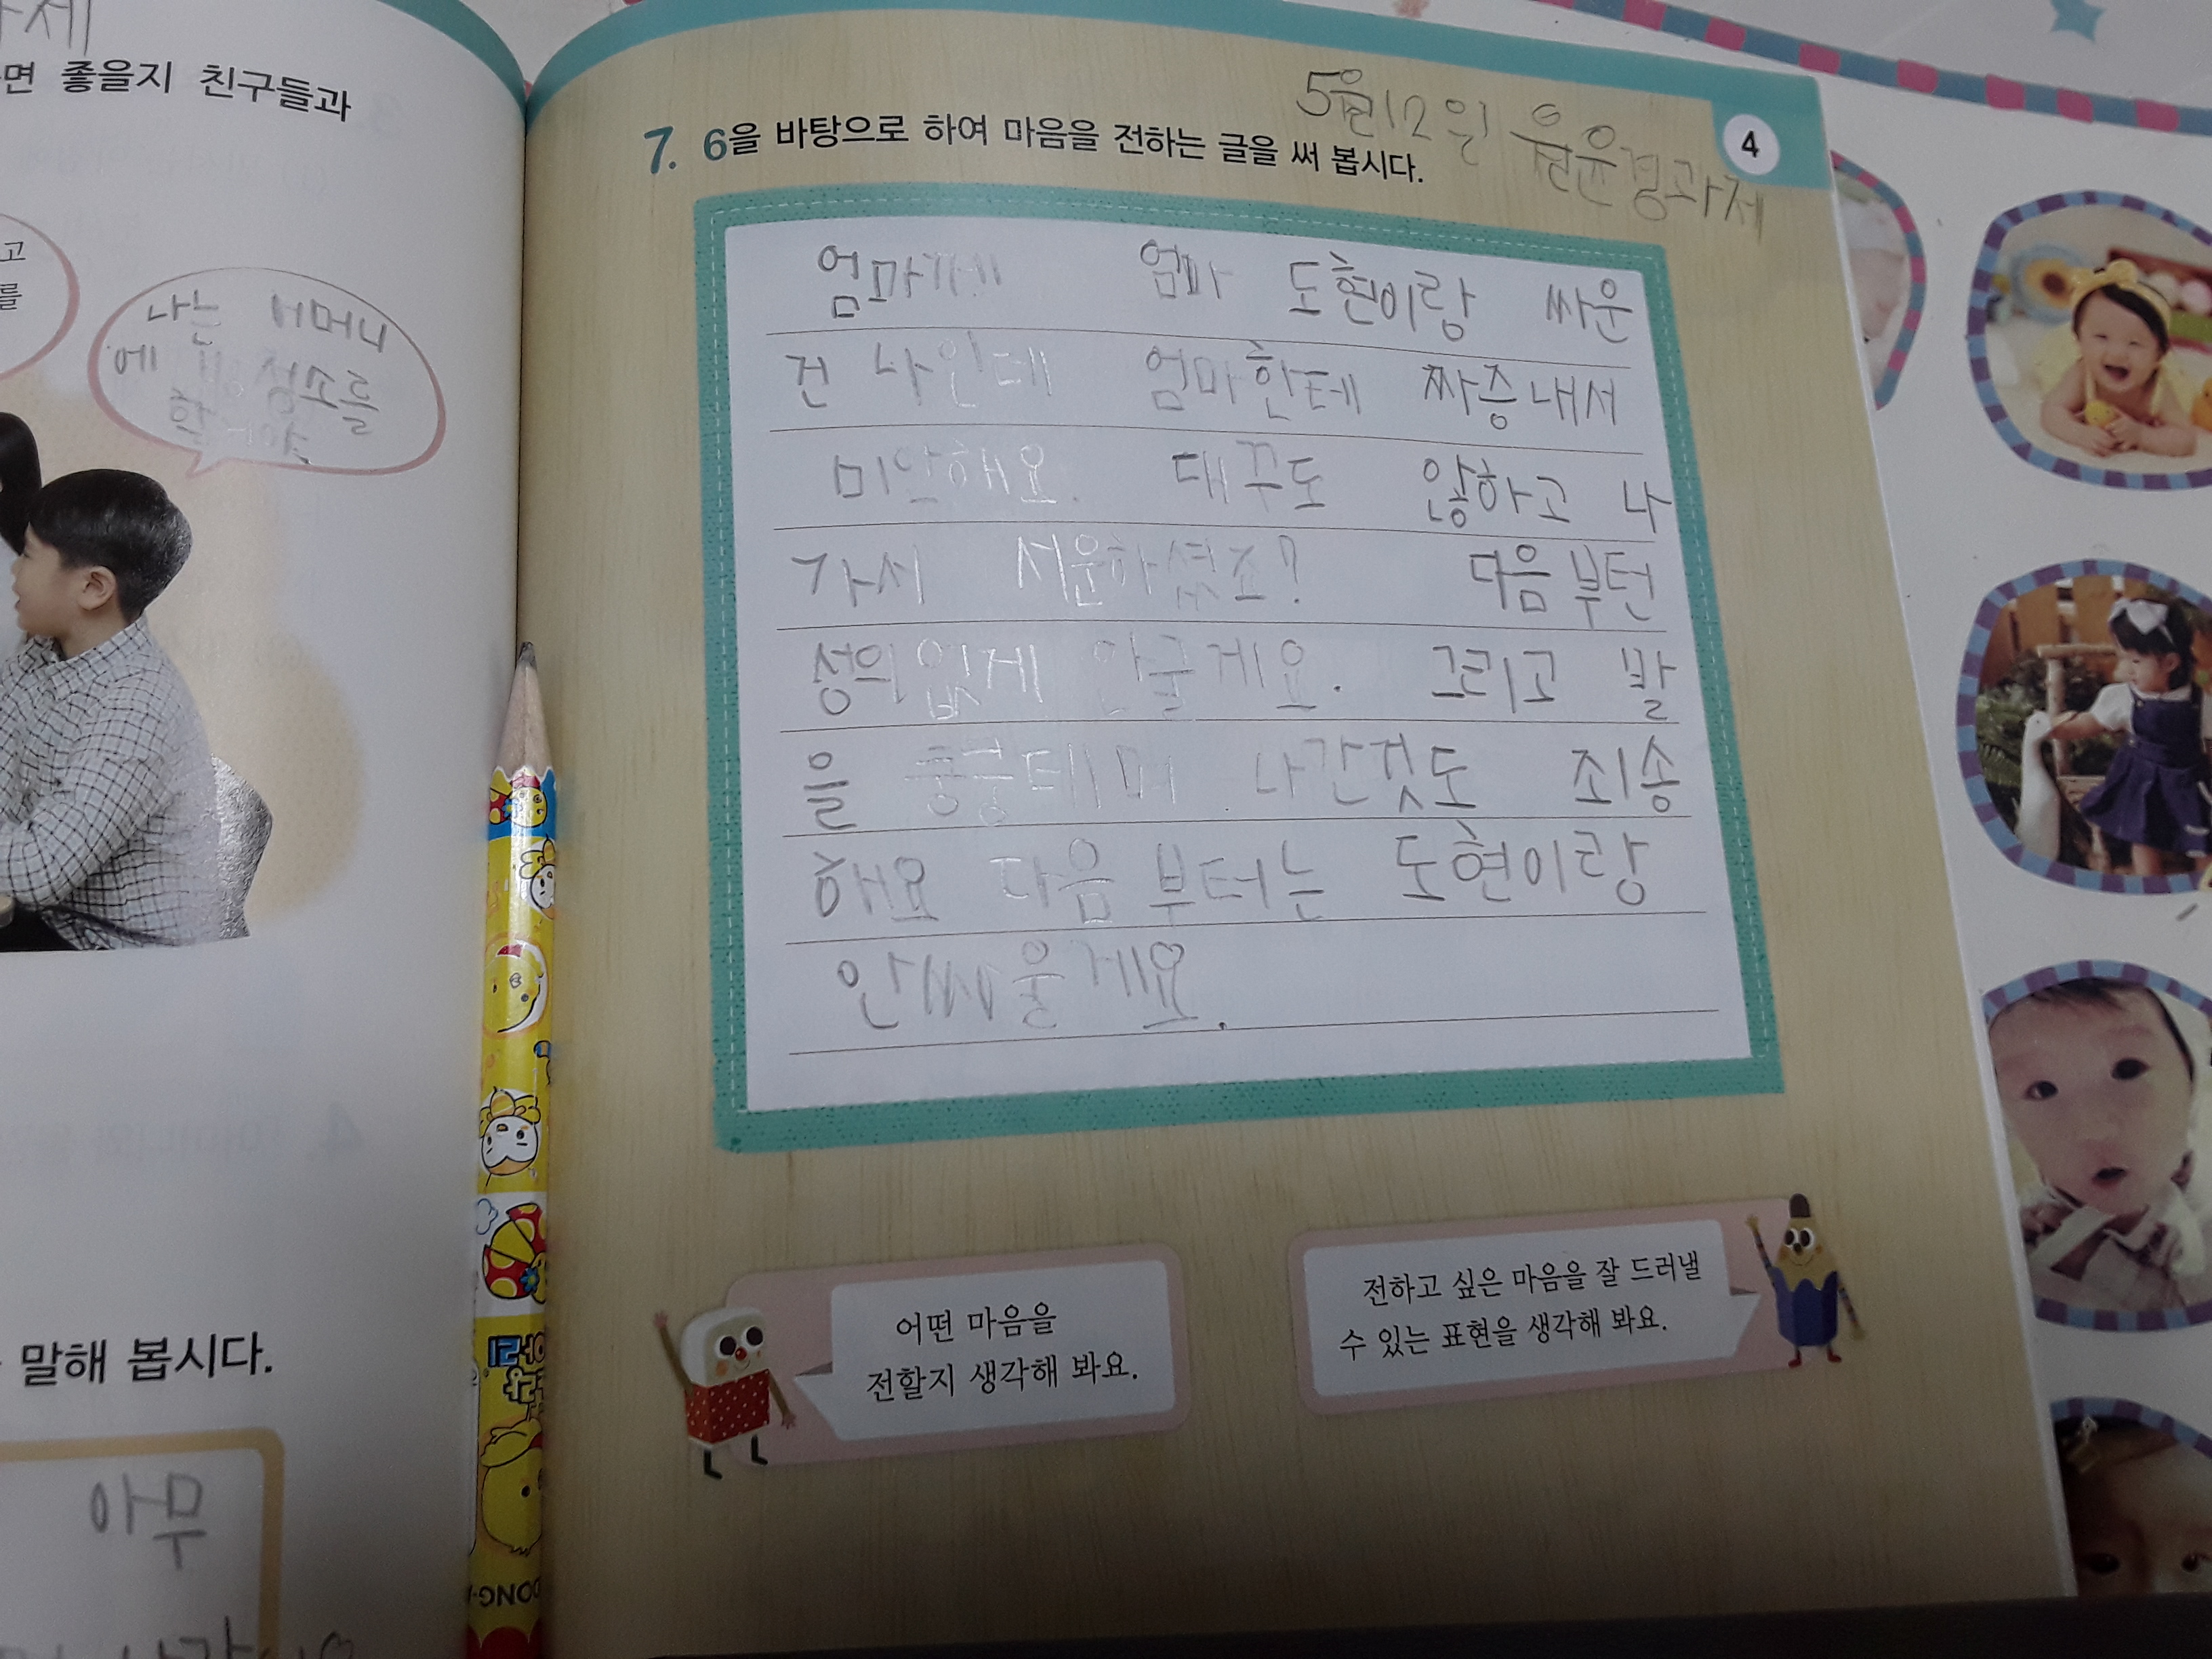 면 좋을지 친구들과
고
를
나는 어머니
에 청소를
할거야
말해 봅시다.
어무
5월12일 윤경과제
4
7. 6을 바탕으로 하여 마음을 전하는 글을 써 봅시다.
엄마께 엄마 도현이랑 싸운
건 나인데 엄마한테 짜증내서
미안해요. 대꾸도 않하고 나
가서 서운하셨죠? 다음부턴
성의없게 안굴게요. 그리고 발
을 쿵쿵데며 나간것도 죄송
해요 다음부터는 도현이랑
안싸울게요.
어떤 마음을
전할지 생각해 봐요.
전하고 싶은 마음을 잘 드러낼
수 있는 표현을 생각해 봐요.